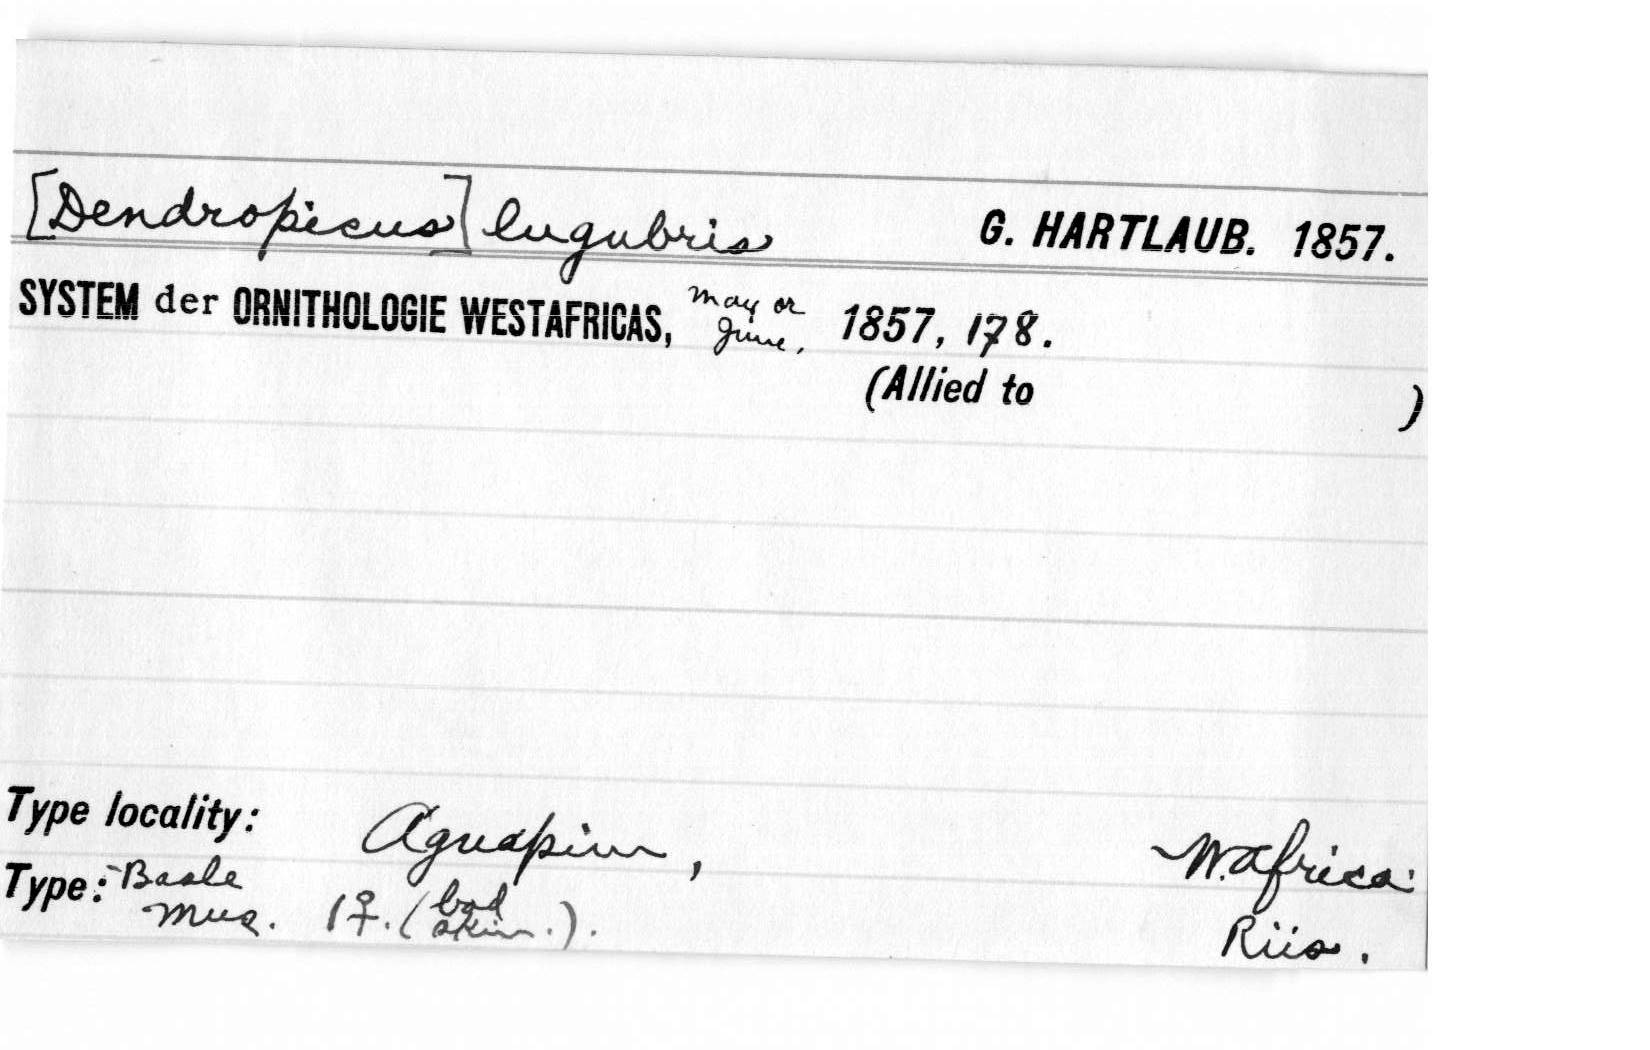 [Dendropicus] lugubris G. HARTLAUB. 1857.
SYSTEM der ORNITHOLOGIE WESTAFRICAS, May or June, 1857, 178.
(Allied to )
Type locality: Aguapim, W. Africa.
Type: Basle Mus. 1♀. (bad skin.). Riis.